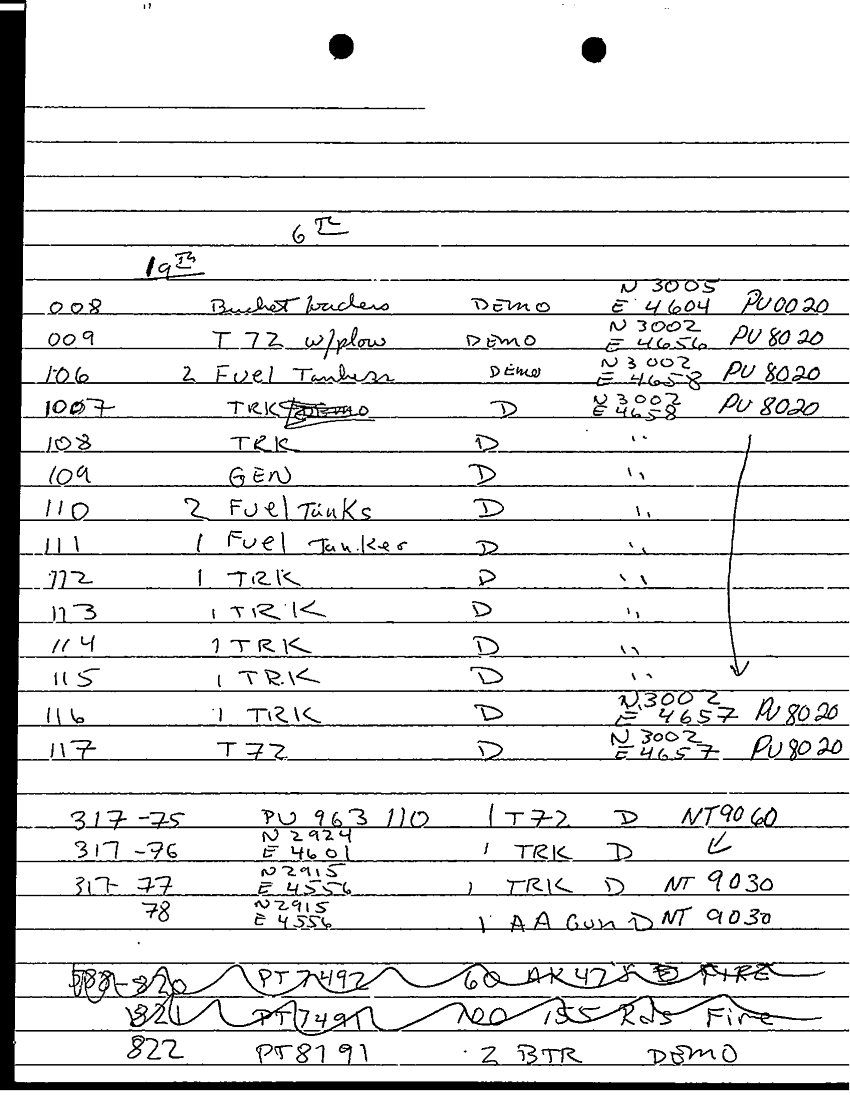 6 TH
19 TH
008 Bucket loaders DEMO N 3005 E 4604 PU0020
009 T 72 w/plow DEMO N 3002 E 4656 PU 8020
106 2 Fuel Tankers DEMO N 3002 E 4658 PU 8020
1007 TRK DEMO D N 3002 E 4658 PU 8020
108 TRK D ''
109 GEN D ''
110 2 Fuel Tanks D ''
111 1 Fuel Tanker D ''
112 1 TRK D ''
113 1 TRK D ''
114 1 TRK D ''
115 1 TRK D ''
116 1 TRK D N 3002 E 4657 PU 8020
117 T 72 D N 3002 E 4657 PU 8020
317-75 PU 963 110 1 T72 D NT9060
317-76 N 2924 E 4601 1 TRK D
317-77 N 2915 E 4556 1 TRK D NT 9030
78 N 2915 E 4556 1 AA Gun D NT 9030
820 PT7492 60 AK 47's FIRE
821 PT7491 155 Rds Fire
822 PT8191 2 BTR DEMO